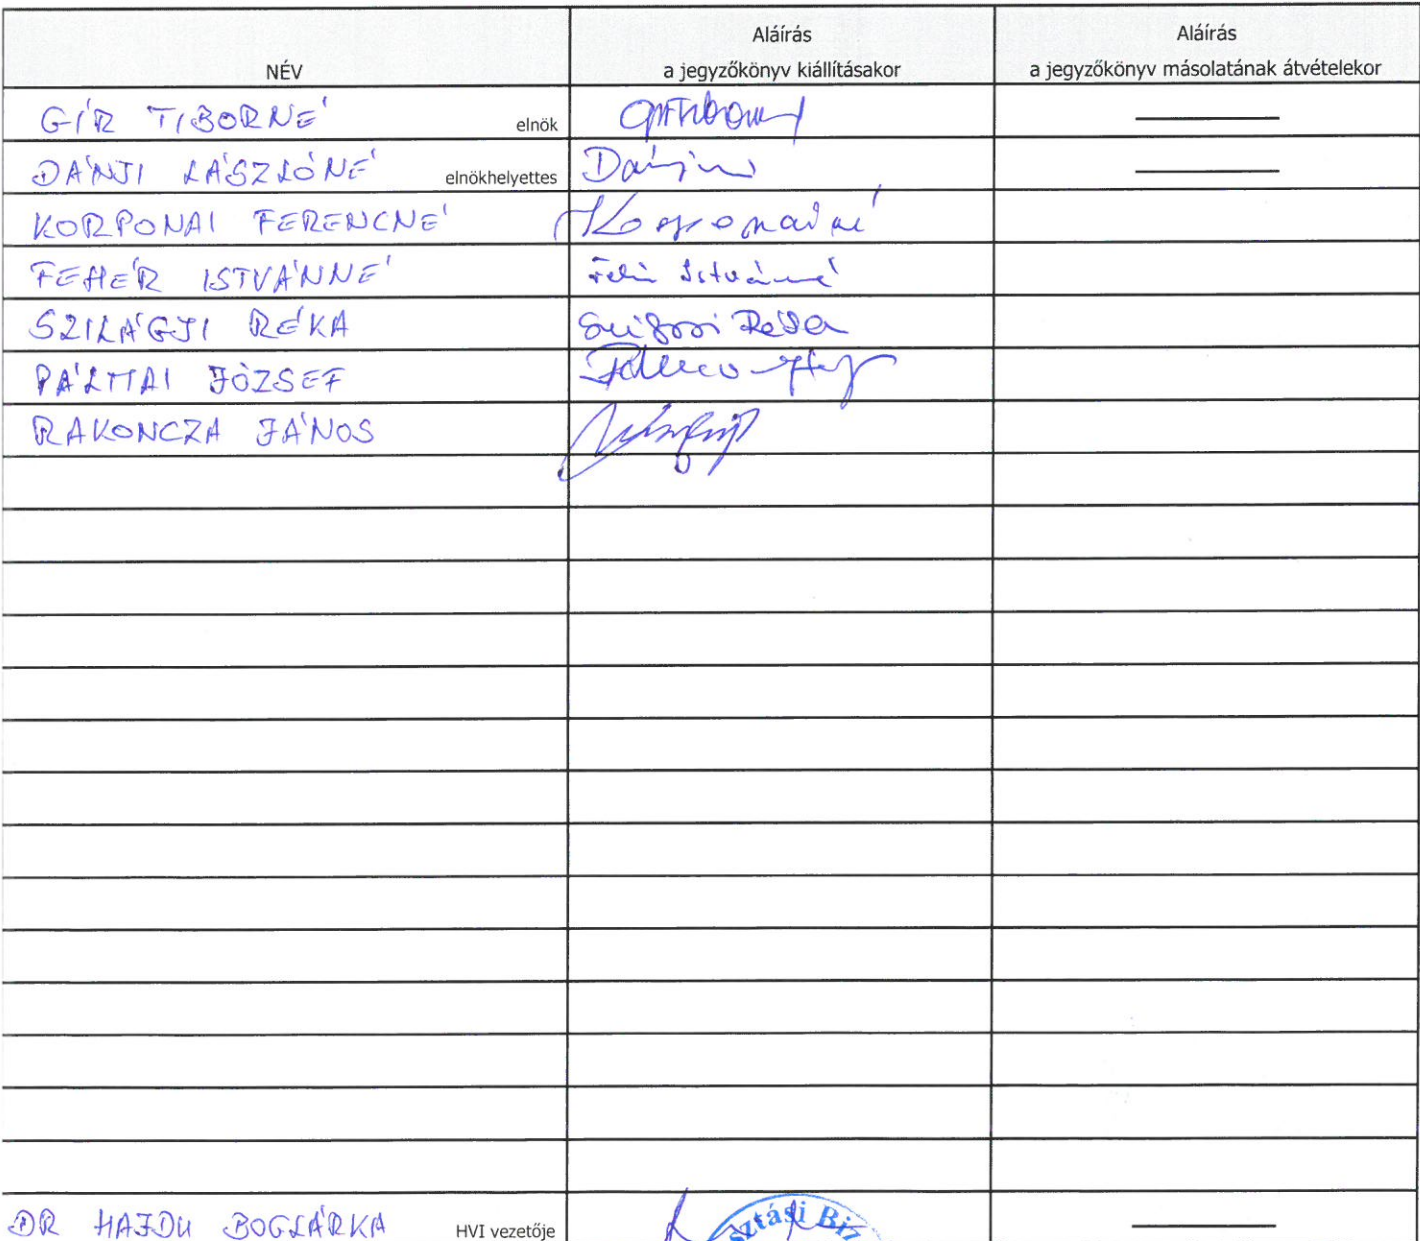 Aláírás
Aláírás
NÉV
a jegyzőkönyv kiállításakor
a jegyzőkönyv másolatának átvételekor
GÍR TIBORNÉ elnök
DÁNJI LÁSZLÓNÉ elnökhelyettes
KORPONAI FERENCNÉ Korponainé
FEHÉR ISTVÁNNÉ Fehér Istvánné
SZILÁGJI RÉKA Szilágyi Réka
PÁLMAI JÓZSEF
RAKONCZA JÁNOS
DR HAJDU BOGLÁRKA HVI vezetője